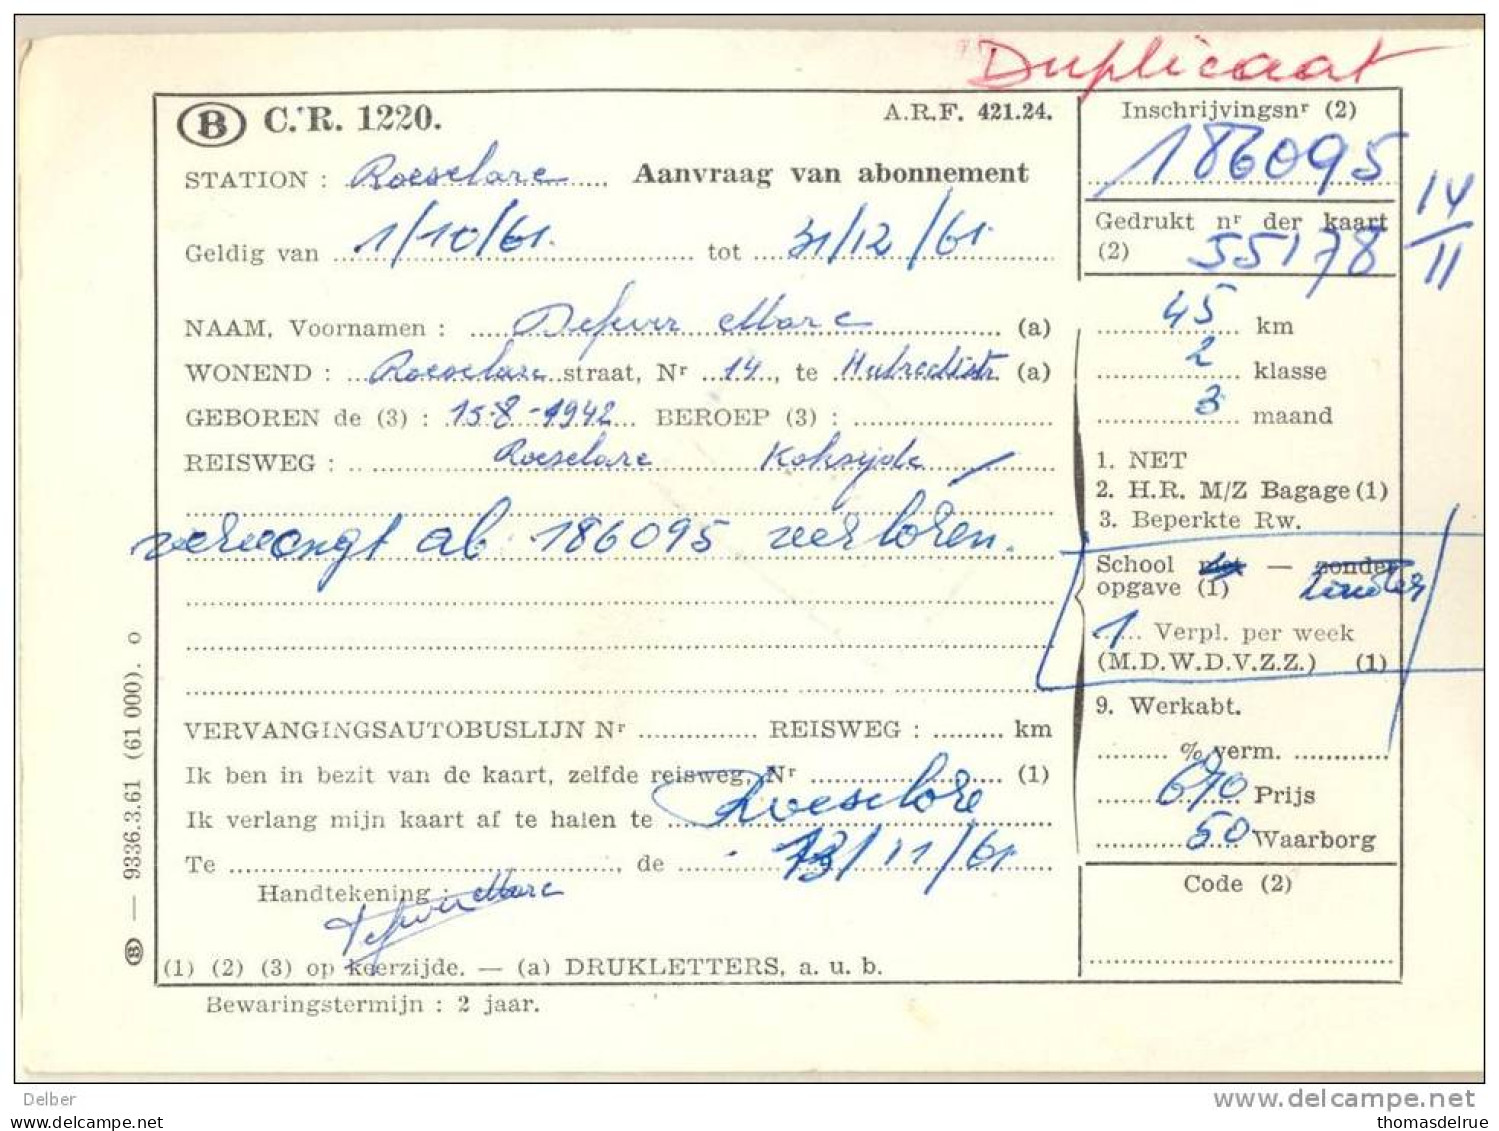 Duplicaat
B C.R. 1220.
A.R.F. 421.24.
Inschrijvingsnr (2)
186095
STATION : Roeselare
Aanvraag van abonnement
14/11
Geldig van 1/10/61 tot 31/12/61
Gedrukt nr der kaart
(2) 55178
NAAM, Voornamen : Defever Marc (a)
45 km
WONEND : Roeselare straat, Nr 14, te (a)
2 klasse
GEBOREN de (3) : 15-8-1942 BEROEP (3) :
3 maand
REISWEG : Roeselare Koksijde
1. NET
2. H.R. M/Z Bagage (1)
3. Beperkte Rw.
vervangt ab 186095 verloren.
School met — zonder
opgave (1) zonder
1 Verpl. per week
(M.D.W.D.V.Z.Z.) (1)
9. Werkabt.
VERVANGINGSAUTOBUSLIJN Nr REISWEG : km
% verm.
Ik ben in bezit van de kaart, zelfde reisweg, Nr (1)
670 Prijs
Ik verlang mijn kaart af te halen te Roeselare
50 Waarborg
Te , de 13/11/61
Code (2)
Handtekening : Defever Marc
(1) (2) (3) op keerzijde. — (a) DRUKLETTERS, a. u. b.
Bewaringstermijn : 2 jaar.
B — 9336.3.61 (61 000). o
Delber
www.delcampe.net
www.delcampe.net
thomasdelrue